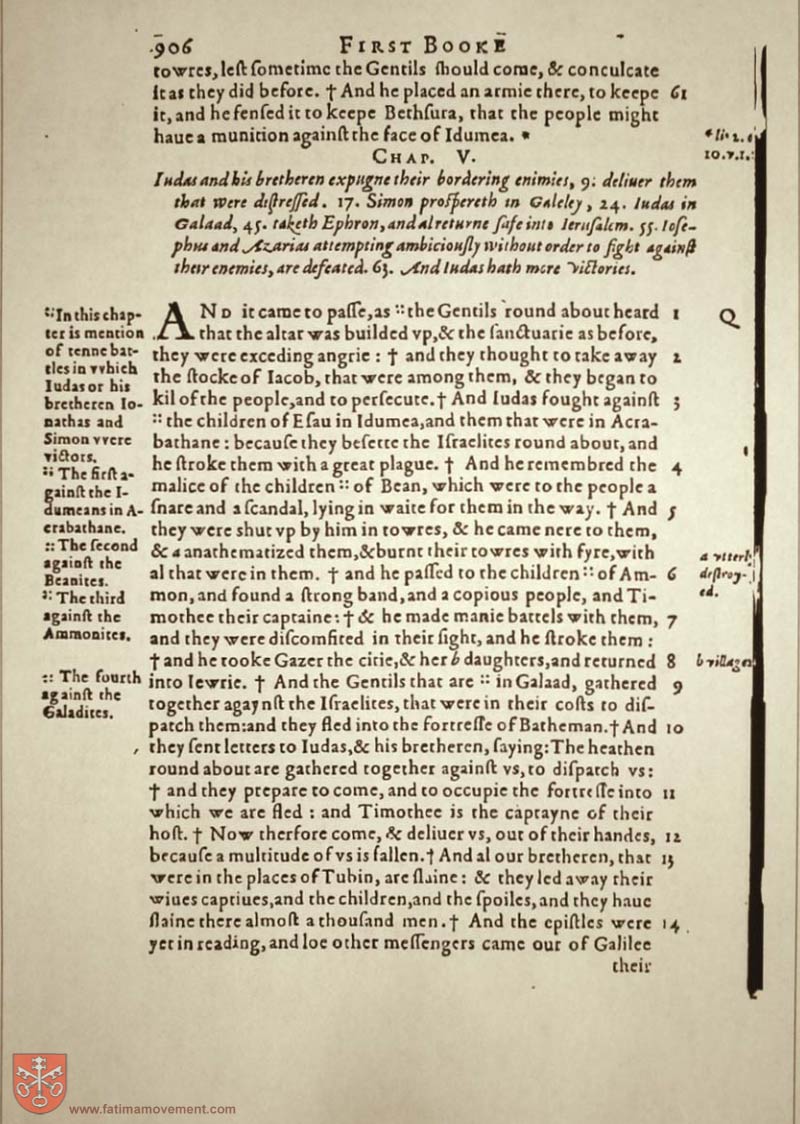 906 FIRST BOOKE
towres, leſt ſometime the Gentils ſhould come, & conculcate
it as they did before. † And he placed an armie there, to keepe 61
it, and he fenſed it to keepe Bethſura, that the people might
haue a munition againſt the face of Idumea. *
CHAP. V.
Iudas and his bretheren expugne their bordering enimies, 9. deliuer them
that were diſtreſſed. 17. Simon proſpereth in Galeley, 24. Iudas in
Galaad, 45. taketh Ephron, and al returne ſafe into Ieruſalem. 55. Ioſe-
phus and Azarias attempting ambiciouſly without order to fight againſt
their enemies, are defeated. 63. And Iudas hath more victories.
AND it came to paſſe, as :: the Gentils round about heard 1
that the altar was builded vp, & the ſanctuarie as before,
they were exceding angrie : † and they thought to take away 2
the ſtocke of Iacob, that were among them, & they began to
kil of the people, and to perſecute. † And Iudas fought againſt 3
:: the children of Eſau in Idumea, and them that were in Acra-
bathane : becauſe they beſette the Iſraelites round about, and
he ſtroke them with a great plague. † And he remembred the 4
malice of the children :: of Bean, which were to the people a
ſnare and a ſcandal, lying in waite for them in the way. † And 5
they were shut vp by him in towres, & he came nere to them,
& a anathematized them, & burnt their towres with fyre, with
al that were in them. † and he paſſed to the children :: of Am- 6
mon, and found a ſtrong band, and a copious people, and Ti-
mothee their captaine: † & he made manie battels with them, 7
and they were diſcomfited in their ſight, and he ſtroke them :
† and he tooke Gazer the citie, & her b daughters, and returned 8
into Iewrie. † And the Gentils that are :: in Galaad, gathered 9
together agaynſt the Iſraelites, that were in their coſts to diſ-
patch them: and they fled into the fortreſſe of Batheman. † And 10
they ſent letters to Iudas, & his bretheren, ſaying: The heathen
round about are gathered together againſt vs, to diſpatch vs:
† and they prepare to come, and to occupie the fortreſſe into 11
which we are fled : and Timothee is the captayne of their
hoſt. † Now therfore come, & deliuer vs, out of their handes, 12
becauſe a multitude of vs is fallen. † And al our bretheren, that 13
were in the places of Tubin, are ſlaine : & they led away their
wiues captiues, and the children, and the ſpoiles, and they haue
ſlaine there almoſt a thouſand men. † And the epiſtles were 14
yet in reading, and loe other meſſengers came out of Galilee
their
:: In this chap-
ter is mention
of tenne bat-
tles in vvhich
Iudas or his
bretheren Io-
nathas and
Simon vvere
victors.
:: The firſt a-
gainſt the I-
dumeans in A-
crabathane.
:: The ſecond
againſt the
Beanites.
:: The third
againſt the
Ammonites.
:: The fourth
againſt the
Galadites.
10. v. 1.
Q
a vtterly
deſtroy-
ed.
b villages
www.fatimamovement.com